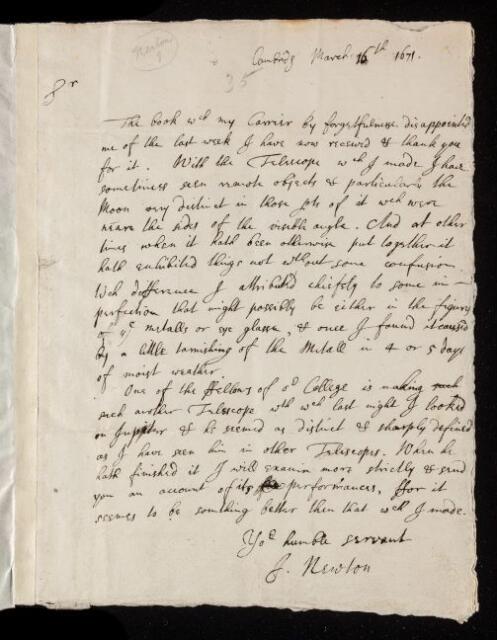 Newton
1
Cambridg March 16th 1671.
35
Sr
The book wch my Carrier by forgetfulness disappointed
me of the last week I have now received & thank you
for it. With the Telescope wch I made I have
sometimes seen remote objects & particularly the
Moon very distinct in those pts of it wch were
neare the sides of the visible angle. And at other
times when it hath been otherwise put together it
hath exhibited things not wthout some confusion.
Wch difference I attributed chiefly to some im-
perfection that might possibly be either in the figures
of ye metalls or eye glasse, & once I found it caused
by a little tarnishing of the Metall in 4 or 5 days
of moist weather.
One of the ffellows of or College is making such
such another Telescope wth wch last night I looked
on Jupiter & he seemed as distinct & sharply defined
as I have seen him in other Telescopes. When he
hath finished it I will examin more strictly & send
you an account of its performances, ffor it
seemes to be something better then that wch I made.
Yor humble servant
I. Newton